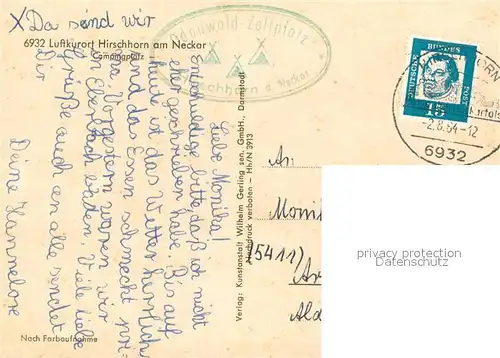 X Da sind wir
6932 Luftkurort Hirschhorn am Neckar
Campingplatz
Odenwald-Zeltplatz
Hirschhorn a. Neckar
Liebe Monika!
Entschuldige bitte, daß ich nicht
eher geschrieben habe. Bis auf
heut ist das Wetter herrlich
und das Essen schmeckt pri-
ma. Vorgestern waren wir
in Eberbach baden. Viele liebe
Grüße auch an alle sendet
Dir
Deine Hannelore
Nach Farbaufnahme
Verlag: Kunstanstalt Wilhelm Gerling sen. GmbH., Darmstadt
Nachdruck verboten - Hh/N 3913
DEUTSCHE
BUNDES
POST
15
-2.8.64-12
6932
An
Moni
(5411)
Ald
privacy protection
Datenschutz